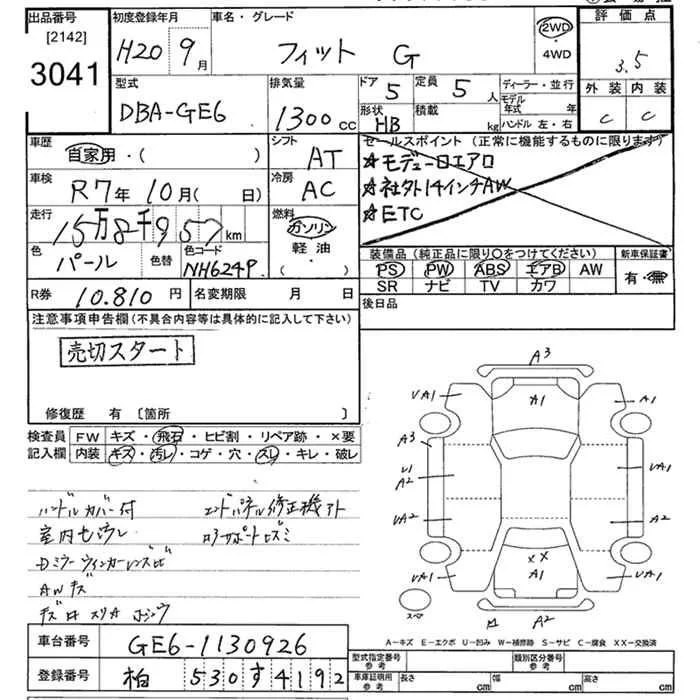 出品番号 [2142] 3041
初度登録年月 H20 9月
車名・グレード フィット G
2WD・4WD
評価点 3.5
外装 内装
C C
型式 DBA-GE6
排気量 1300cc
ドア 5 定員 5人
形状 HB 積載 kg
ディーラー・並行
モデル年式 年
ハンドル 左・右
車歴 自家用・( )
シフト AT
車検 R7年10月( 日)
冷房 AC
走行 15万8千957km
燃料 ガソリン 軽油・( )
色 パール 色替 色コード NH624P
セールスポイント (正常に機能するものに限ります)
☆モデューロエアロ
☆社外14インチAW
☆ETC
装備品 (純正品に限り○をつけてください)
PS PW ABS エアB AW
SR ナビ TV カワ
新車保証書
有・無
R券 10.810円 名変期限 月 日
後日品
注意事項申告欄(不具合内容等は具体的に記入して下さい)
売切スタート
修復歴 有 〔箇所 〕
検査員記入欄
FW キズ・飛石・ヒビ割・リペア跡・×要
内装 キズ・汚レ・コゲ・穴・スレ・キレ・破レ
ハンドルカバー付 エンドパネル修正機アト
Dミラーウインカーレンズヒビ
AWキズ
A3
VA1 A1 A1
A3
U1
A2 UA1
UA2 A2
XX
VA1 A1 VA1
スペア A2
A-キズ E-エクボ U-凹み W-補修跡 S-サビ C-腐食 XX-交換済
車台番号 GE6-1130926
登録番号 柏 530 す 4192
型式指定番号 参考 類別区分番号 参考
車庫証明用 参考 長さ cm 幅 cm 高さ cm